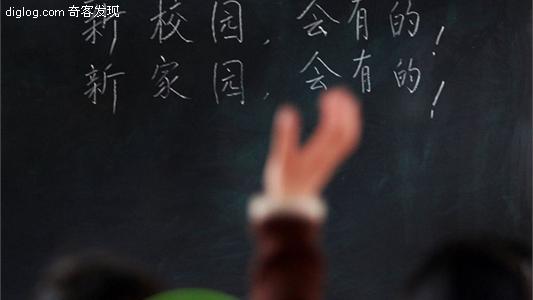 diglog.com 奇客发现
新校园，会有的！
新家园，会有的！